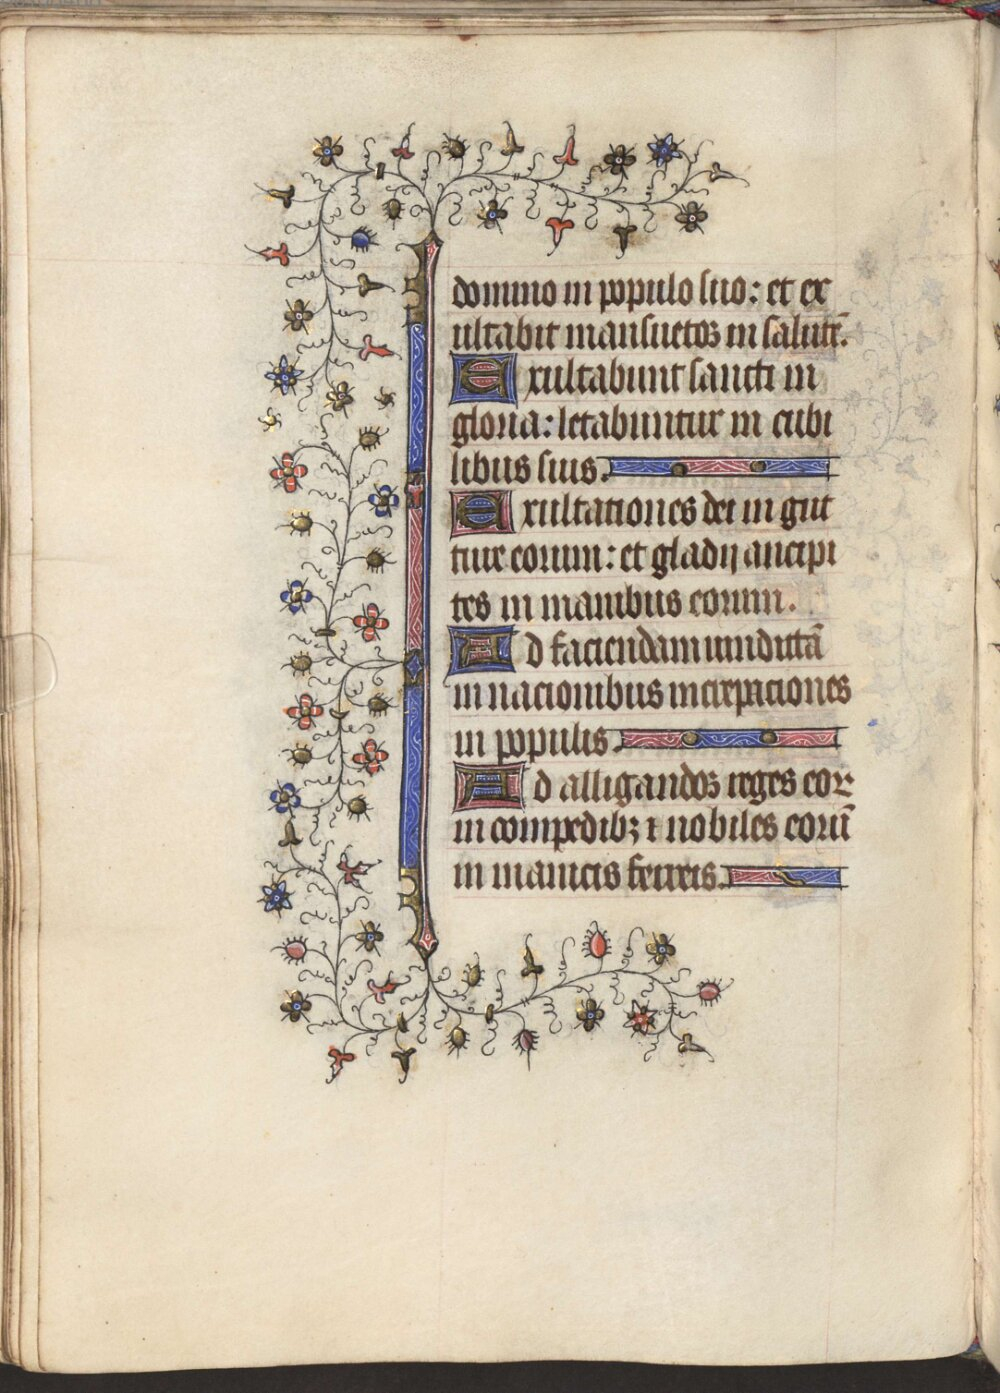 domino in populo suo: et ex
ultabit mansuetos in salutē.
Exultabunt sancti in
gloria: letabuntur in cubi
libus suis.
Exultationes dei in gut
ture eorum: et gladij ancipi
tes in manibus eorum.
Ad faciendam uindictā
in nacionibus increpaciones
in populis.
Ad alligandos reges eoꝝ
in compedibꝫ ⁊ nobiles eorū
in manicis ferreis.